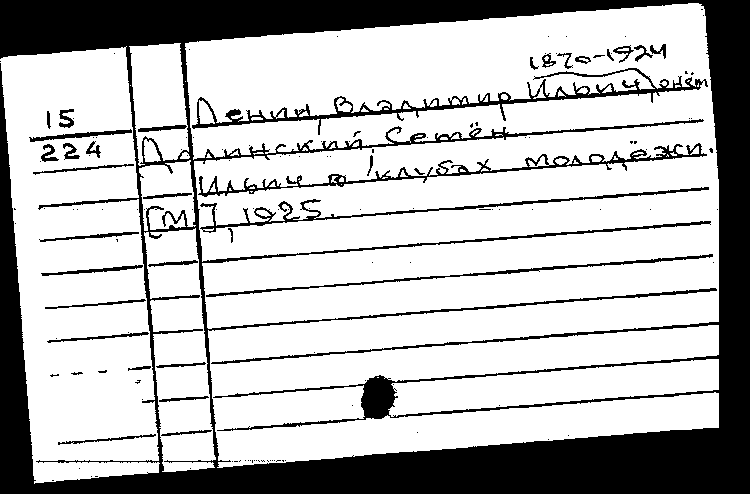 1870-1924
15 Ленин, Владимир Ильич, о нём
224 Долинский, Семён
Ильич в клубах молодёжи.
[М.], 1925.